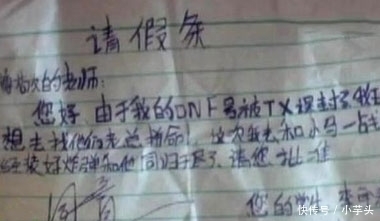 请假条
的老师:
您好,由于我的DNF号被TX误封了,我
想去找他们老总拼命!这次我去和小马一战
经装好炸弹和他同归于尽了,请您批准
同意
您的学生
快传号 / 小芋头